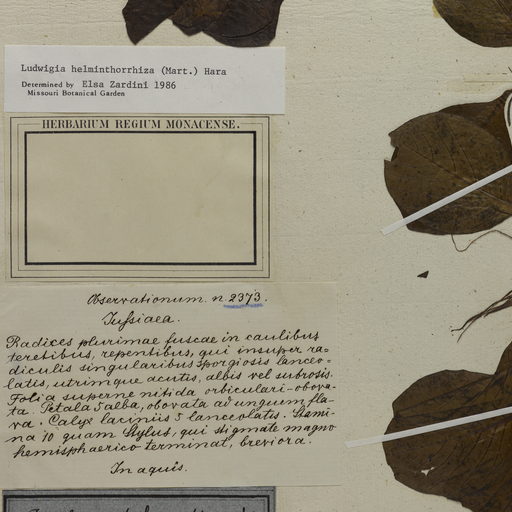 Ludwigia helminthorrhiza (Mart.) Hara
Determined by Elsa Zardini 1986
Missouri Botanical Garden
HERBARIUM REGIUM MONACENSE.
Observationum. n. 2373.
Jufsiaea.
Radices plurimae fuscae in caulibus
teretibus, repentibus, qui insuper ra-
diculis singularibus sporgiosis lanceo-
latis, utrimque acutis, albis vel subrosis.
Folia superne nitida orbiculari-obova-
ta. Petala 5 alba, obovata ad unguem fla-
va. Calyx laciniis 5 lanceolatis. Stami-
na 10 quam Stylus, qui stigmate magno
hemisphaerico terminat, breviora.
In aquis.